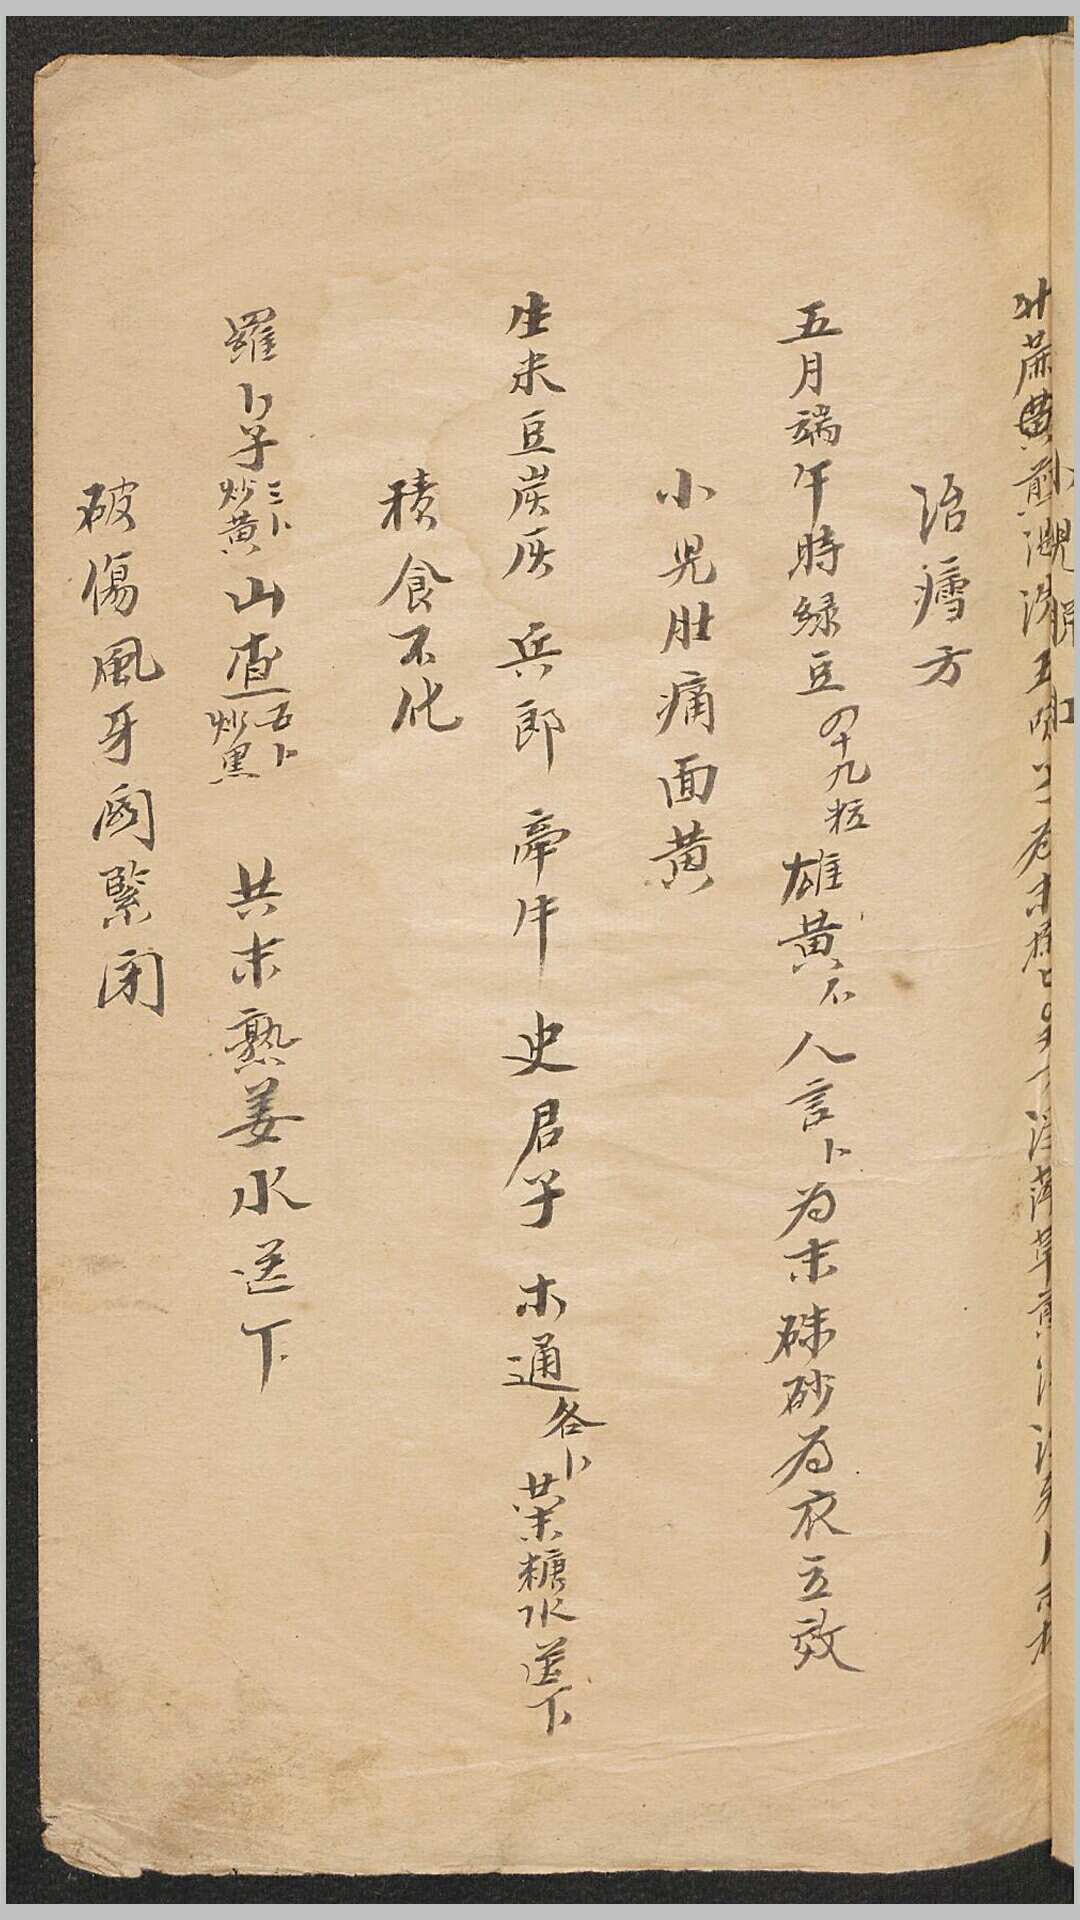 治瘧方
五月端午時綠豆四十九粒雄黃不人言卜為末硃砂為衣立效
小児肚痛面黃
生米豆炭灰兵郎牽牛史君子木通各卜共末糖水送下
積食不化
羅卜子三卜炒黃山查五卜炒黑共末熟姜水送下
破傷風牙関緊閉